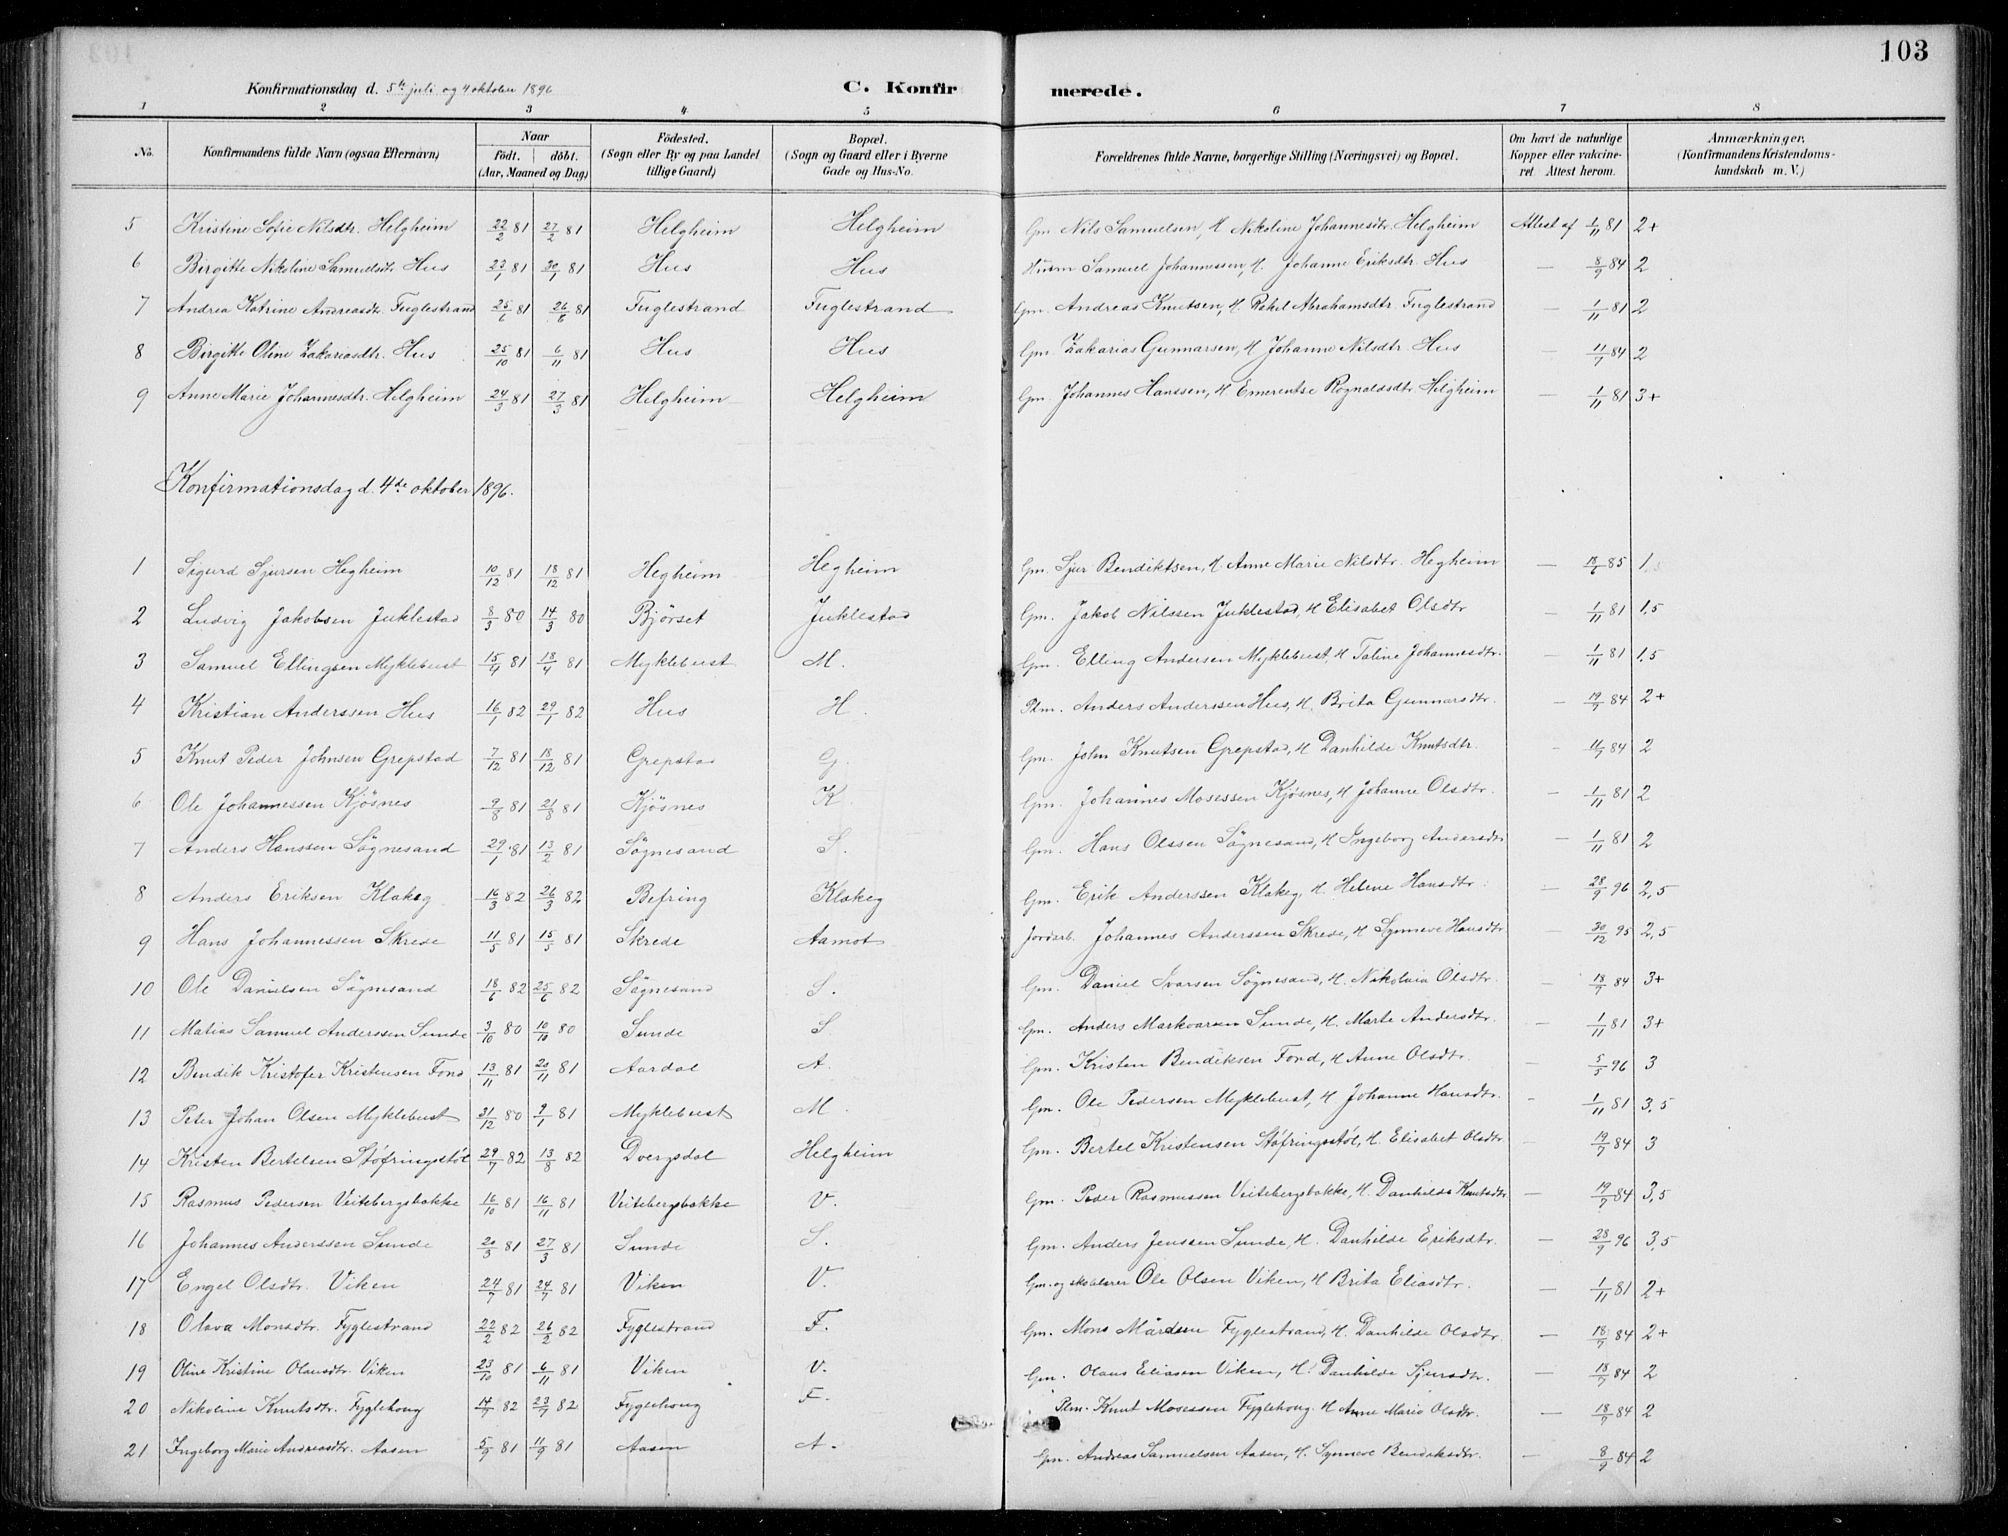 103
Konfirmationsdag d. 5te juli og 4 oktober 1896 C. Konfirmerede.
1 2 3 4 5 6 7 8
No. Konfirmandens fulde Navn (ogsaa Efternavn) Naar födt. döbt. (Aar, Maaned og Dag) Födested. (Sogn eller By og paa Landet tillige Gaard) Bopæl. (Sogn og Gaard eller i Byerne Gade og Hus-No. Forældrenes fulde Navne, borgerlige Stilling (Næringsvei) og Bopæl. Om havt de naturlige Kopper eller vakcineret. Attest herom. Anmærkninger, (Konfirmandens Kristendomskundskab m. V.)
5 Kristine Sofie Nilsdtr. Helgheim 22/2 81 27/2 81 Helgheim Helgheim Gm. Nils Samuelsen, H. Nikoline Johannesdtr. Helgheim Attest af 1/11 81 2+
6 Birgitte Nikoline Samuelsdtr Hus 23/1 81 30/1 81 Hus Hus Husm Samuel Johannessen, H. Johanne Eriksdtr. Hus — 8/9 84 2
7 Andrea Katrine Andreasdtr Fuglestrand 25/6 81 26/6 81 Fuglestrand Fuglestrand Gm. Andreas Knutsen, H. Rakel Abrahamsdtr. Fuglestrand — 1/11 81 2
8 Birgitte Oline Zakariasdtr. Hus 25/10 81 6/11 81 Hus Hus Gm. Zakarias Gunnarsen, H Johanne Nilsdtr. Hus — 11/7 84 2
9 Anne Marie Johannesdtr. Helgheim 24/3 81 27/3 81 Helgheim Helgheim Gm. Johannes Hanssen, H. Emerentse Rognaldsdtr. Helgheim — 1/11 81 3+
Konfirmationsdag d. 4de oktober 1896.
1 Sigurd Sjursen Hegheim 10/12 81 18/12 81 Hegheim Hegheim Gm. Sjur Bendiktsen, H. Anne Marie Nilsdtr. Hegheim — 18/6 85 1,5
2 Ludvig Jakobsen Juklestad 8/3 80 14/3 80 Bjørset Juklestad Gm. Jakob Nilssen Juklestad, H Elisabet Olsdtr — 1/11 81 1,5
3 Samuel Ellingsen Myklebust 15/4 81 18/4 81 Myklebust M. Gm. Elling Andersen Myklebust, H Taline Johannesdtr. — 1/11 81 1,5
4 Kristian Anderssen Hus 16/1 82 29/1 82 Hus H. Plm. Anders Anderssen Hus, H. Brita Gunnarsdtr. — 19/7 84 2+
5 Knut Peder Johnsen Grepstad 7/12 81 18/12 81 Grepstad G. Gm. John Knutsen Grepstad, H Danhilde Knutsdtr. — 11/7 84 2
6 Ole Johannessen Kjösnes 9/8 81 21/8 81 Kjösnes K. Gm. Johannes Mosessen Kjösnes, H Johanne Olsdtr. — 1/11 81 2
7 Anders Hanssen Sögnesand 29/1 81 13/2 81 Sögnesand S. Gm. Hans Olssen Sögnesand, H Ingeborg Andersdtr — 1/11 81 2
8 Anders Eriksen Klakeg 16/3 82 26/3 82 Befring Klakeg Gm. Erik Anderssen Klakeg, H. Helene Hansdtr. — 28/9 96 2,5
9 Hans Johannessen Skrede 11/5 81 15/5 81 Skrede Aamot Jordarb. Johannes Anderssen Skrede, H Synneve Hansdtr — 30/12 95 2,5
10 Ole Danielsen Sögnesand 18/6 82 25/6 82 Sögnesand S. Gm. Daniel Ivarsen Sögnesand, H. Nikolaia Olsdtr. — 18/7 84 3+
11 Matias Samuel Anderssen Sunde 3/10 80 10/10 80 Sunde S Gm. Anders Markvarsen Sunde, H. Marte Andersdtr. — 1/11 81 3+
12 Bendik Kristofer Kristensen Fond 13/11 81 20/11 81 Aardal A. Gm. Kristen Bendiksen Fond, H Anne Olsdtr. — 5/5 96 3
13 Peter Johan Olsen Myklebust 31/12 80 9/1 81 Myklebust M. Gm. Ole Pedersen Myklebust, H Johanne Hansdtr. — 1/11 81 3,5
14 Kristen Bertelsen Støfringsstøl 29/7 82 13/8 82 Dvergsdal Helgheim Gm. Bertel Kristensen Støfringsstøl, H. Elisabet Olsdtr — 19/7 84 3
15 Rasmus Pedersen Veitebergsbakke 16/10 81 16/11 81 Veitebergsbakke V. Gm. Peder Rasmussen Veitebergsbakke, H. Danhilde Knutsdtr — 19/7 84 3,5
16 Johannes Anderssen Sunde 20/3 81 27/3 81 Sunde S. Gm. Anders Jenssen Sunde, H. Danhilde Eriksdtr. — 28/9 96 3,5
17 Engel Olsdtr. Viken 24/7 81 24/7 81 Viken V. Gm. og skolelærer Ole Olsen Viken, H Brita Eliasdtr. — 1/11 81 2+
18 Olava Monsdtr. Fyglestrand 22/2 82 26/2 82 Fyglestrand F. Gm. Mons Mårdsen Fyglestrand, H. Danhilde Olsdtr. — 18/7 84 2+
19 Oline Kristine Olausdtr. Viken 23/10 81 6/11 81 Viken V. Gm. Olaus Eliasen Viken, H. Danhilde Sjursdtr. — 18/7 84 2
20 Nikoline Knutsdtr. Fyglehoug 14/7 82 23/7 82 Fyglehoug F. Plm. Knut Mosessen Fyglehoug. H Anne Marie Olsdtr. — 18/7 84 2
21 Ingeborg Marie Andreasdtr. Aasen 5/9 81 11/9 81 Aasen A. Gm. Andreas Samuelsen Aasen, H. Synneve Bendiksdtr. — 8/9 84 2